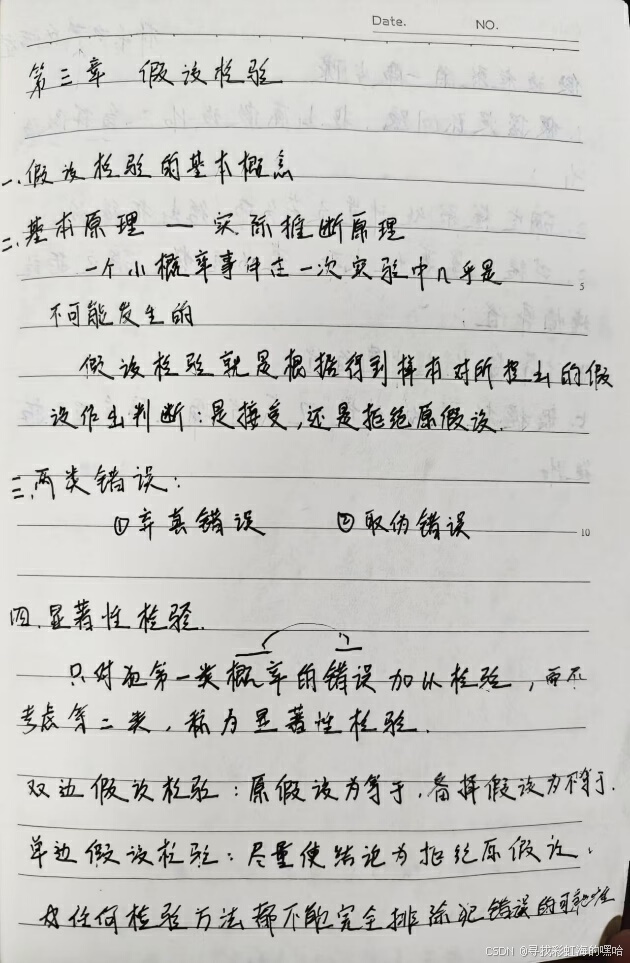 Date. NO.
第三章 假设检验
一.假设检验的基本概念
二.基本原理 — 实际推断原理
一个小概率事件在一次实验中几乎是
5
不可能发生的
假设检验就是根据得到样本对所提出的假
设作出判断:是接受,还是拒绝原假设.
三.两类错误:
①弃真错误 ②取伪错误
10
四.显著性检验.
只对犯第一类概率的错误加以检验,而不
考虑第二类,称为显著性检验.
双边假设检验:原假设为等于,备择假设为不等于.
单边假设检验:尽量使结论为拒绝原假设.
任何检验方法都不能完全排除犯错误的可能性
CSDN @寻找彩虹海的嘿哈